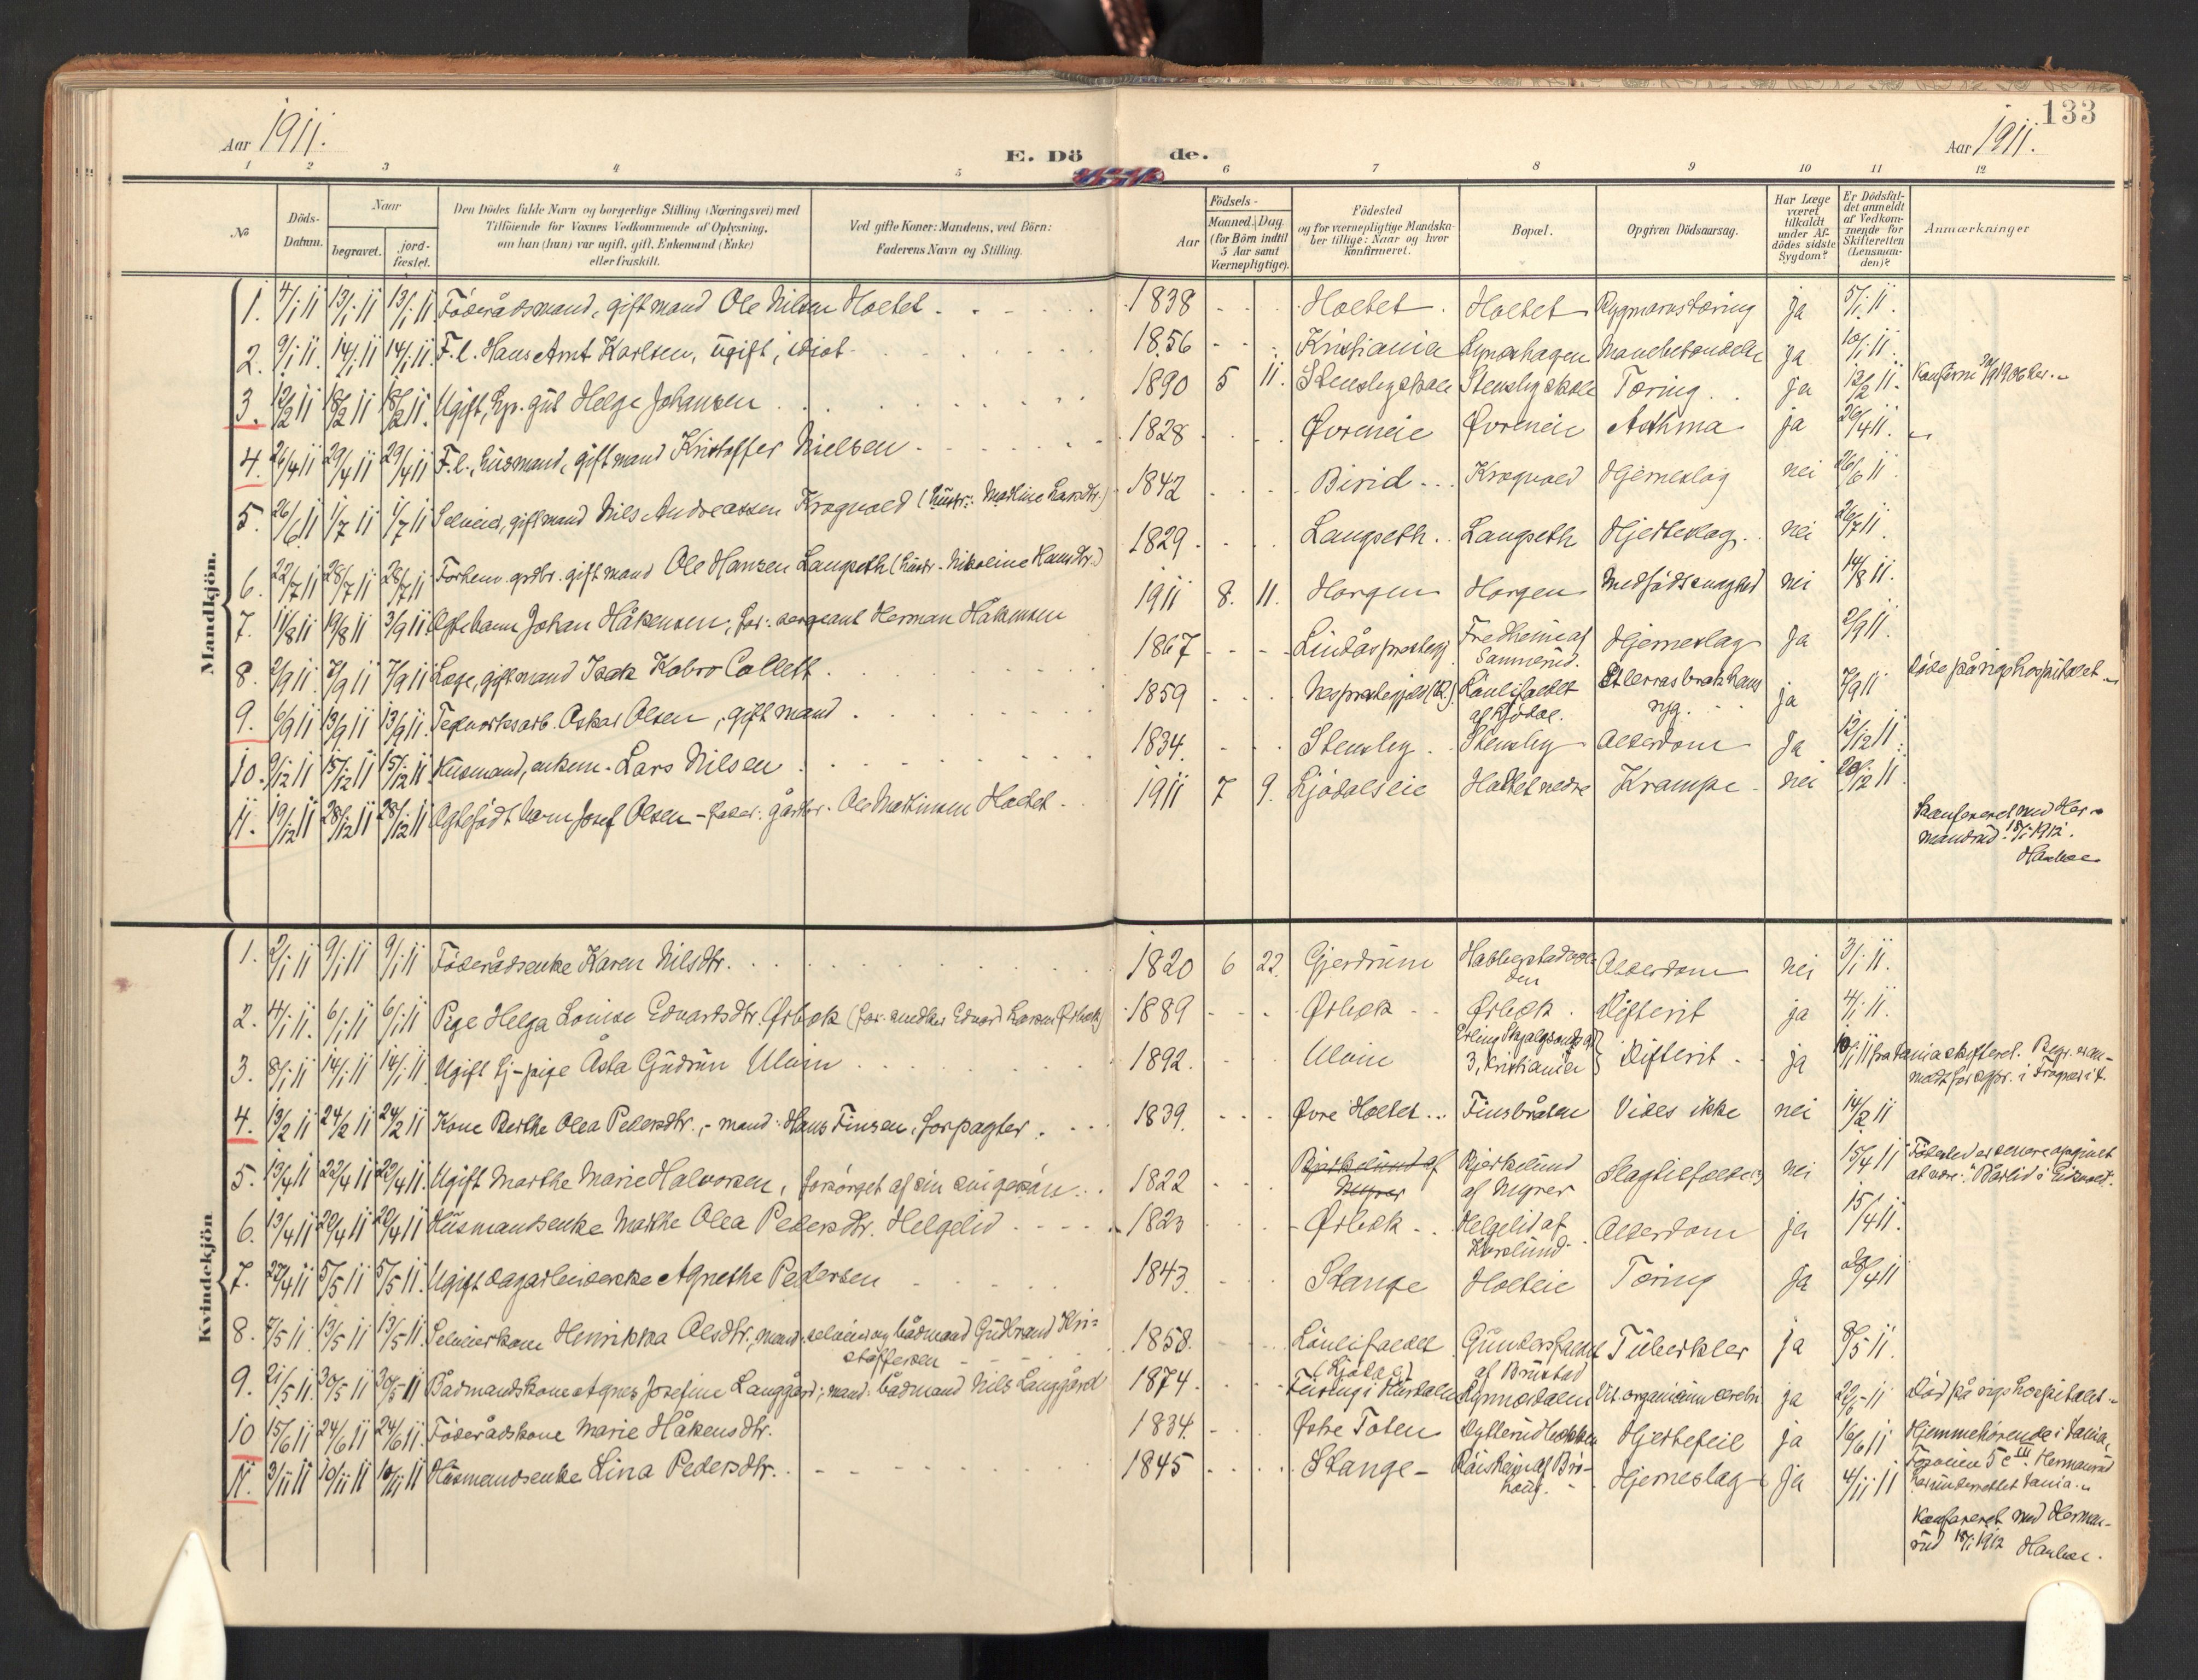 133
Aar 1911.
E. Dö de.
Aar 1911.
1 2 3 4 5 6 7 8 9 10 11 12
No
Döds-Datum.
Naar
begravet.
jord-fæstet.
Den Dödes fulde Navn og borgerlige Stilling (Næringsvei) med
Tilföiende for Voxnes Vedkommende af Oplysning,
om han (hun) var ugift, gift, Enkemand (Enke)
eller fraskilt.
Ved gifte Koner: Mandens, ved Börn:
Faderens Navn og Stilling.
Födsels-
Aar
Maaned. Dag
(for Börn indtil
5 Aar samt
Værnepligtige).
Födested
og for værnepligtige Mandska-
ber tillige: Naar og hvor
konfirmeret.
Bopæl.
Opgiven Dödsaarsag.
Har Læge
været
tilkaldt
under Af-
dödes sidste
Sygdom?
Er Dödsfal-
det anmeldt
af Vedkom-
mende for
Skifteretten
(Lensman-
den)?
Anmærkninger
Mandkjön.
1. 4/1 11 13/1 11 13/1 11 Föderådsmand, gift mand Ole Nilsen Holtet 1838 Holtet Holtet Rygmarvstæring ja 5/1 11.
2. 9/1 11 14/1 11 14/1 11 F.l. Hans Arnt Karlsen, ugift, idiot 1856 Kristiania ja 10/1 11.
3. 12/2 11 18/2 11 18/2 11 Ugift, gut Helge Johansen 1890 5 11. Stensbyskole Stensbyskole Tæring ja 13/2 11.
4. 26/4 11 29/4 11 29/4 11 F.l., husmand, gift mand Kristoffer Nielsen 1828 Øvreneie Øvreneie Asthma ja 26/4 11.
5. 26/6 11 1/7 11 1/7 11 Selveier, gift mand Nils Andreassen Krogvold (hustr: Matline Larsdtr.) 1842 Birid Krogvold Hjerneslag nei 26/6 11
6. 22/7 11 28/7 11 28/7 11 Forhenv. grdbr. gift mand Ole Hansen Langseth (hustr. Nikoline Hansdtr.) 1829 Langseth Langseth Hjerteslag nei 26/7 11.
7. 11/8 11 19/8 11 3/9 11 Ægte barn Johan Håkensen, far: sergeant Herman Håkensen 1911 8. 11. Horgen Horgen Medfödt svaghed nei 14/8 11.
8. 2/9 11 7/9 11 7/9 11 Læge, gift mand Isak Kobro Collett 1867 Lindås prestegj. Fredheim af
Sannerud. Hjerneslag ja 2/9 11.
9. 6/9 11 13/9 11 13/9 11 Teglverksarb. Oskar Olsen, gift mand 1859 Lönlifaldet
af Ljödal. ryg. ja 7/9 11 Döde på rigshospitalet
10. 9/12 11 15/12 11 15/12 11 Husmand, enkem. Lars Nilsen 1834 Stensby Stensby Alderdom ja 12/12 11
11. 19/12 11 28/12 11 28/12 11 Ægtefödt barn Josef Olsen - fader: gårdbr. Ole Martinsen Holtet 1911 7 9. Ljödalseie Holtet nedre Krampe nei 20/12 11
Konfereret med Her-
mansrud. 18/1 1912.
Kvindekjön
1. 2/1 11 9/1 11 9/1 11 Föderådsenke Karen Nilsdtr. 1820 6 22. Gjerdrum Alderdom nei 3/1 11.
2. 4/1 11. 6/1 11 6/1 11 Pige Helga Louise Edvartsdtr. Ørbæk (far: snedker Edvard Larsen Ørbæk) 1889 Ørbæk Ørbæk Difterit ja 4/1 11.
3. 8/1 11 14/1 11 14/1 11 Ugift tj-pige Åsta Gudrun Ulvin 1892. Ulvin Erling Skjalgsonsgt
3, Kristiania Difterit ja 10/1 11
4. 13/2 11 24/2 11 24/2 11 Kone Berthe Olea Pedersdtr., mand: Hans Finsen, forpagter 1839. Øvre Holtet Finsbråten Vides ikke nei 14/2 11
5. 13/4 11 22/4 11 22/4 11 Ugift Marthe Marie Halvorsen, forsörget af sin svigersön 1822 Bjerkelund af
Myrer Bjerkelund
af Myrer Slagtilfælde nei 15/4 11 Födested er senere opgivet
at være: "Bårlid i Eidsvold".
6. 13/4 11 20/4 11 20/4 11 Husmandsenke Marthe Olea Pedersdtr. Helgelid 1823 Ørbæk Helgelid af
Korslund Alderdom ja 15/4 11.
7. 27/4 11 5/5 11 5/5 11 Ugift dagarbeiderske Agnethe Pedersen 1843. Stange Holteie Tæring ja 28/4 11
8. 7/5 11 13/5 11 13/5 11 Selveierkone Henrikka Olsdtr., mand: selveier og bådmand Gudbrand Kri-
stoffersen 1858. Lönlifaldet
(Ljödal)
af Brustad Tuberkler ja 8/5 11.
9. 21/5 11. 30/5 11 30/5 11 Bådmandskone Agnes Josefine Langgård; mand: bådmand Nils Langgård 1874. Feiring i Hurdalen Vit. organicum cerebri ja 22/5 11 Död på rigshospitalet
10 15/6 11 24/6 11 24/6 11. Föderådskone Marie Håkensdtr. 1834. Østre Toten Hjertefeil ja 16/6 11 Hjemmehörende i
11. 3/11 11 10/11 11 10/11 11 Husmandsenke Lina Pedersdtr. 1845 Stange Hjerneslag ja 4/11 11
Konfereret med Herman-
rud 18/1 1912